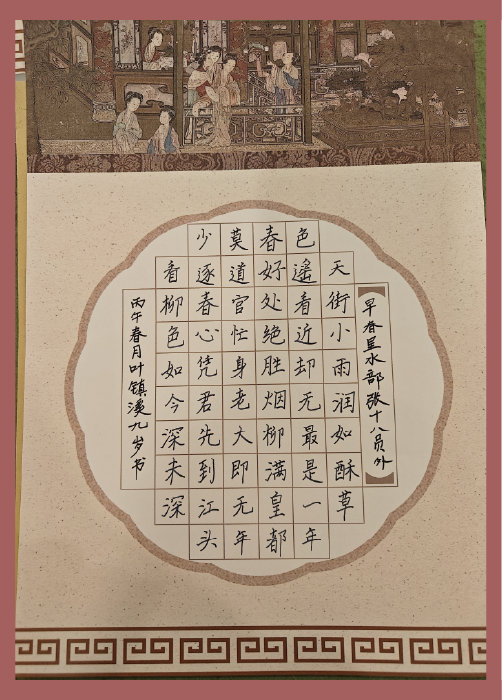 【早春呈水部张十八员外】
天街小雨润如酥草
色遥看近却无最是一年
春好处绝胜烟柳满皇都
莫道官忙身老大即无年
少逐春心凭君先到江头
看柳色如今深未深
丙午春月叶镇溪九岁书